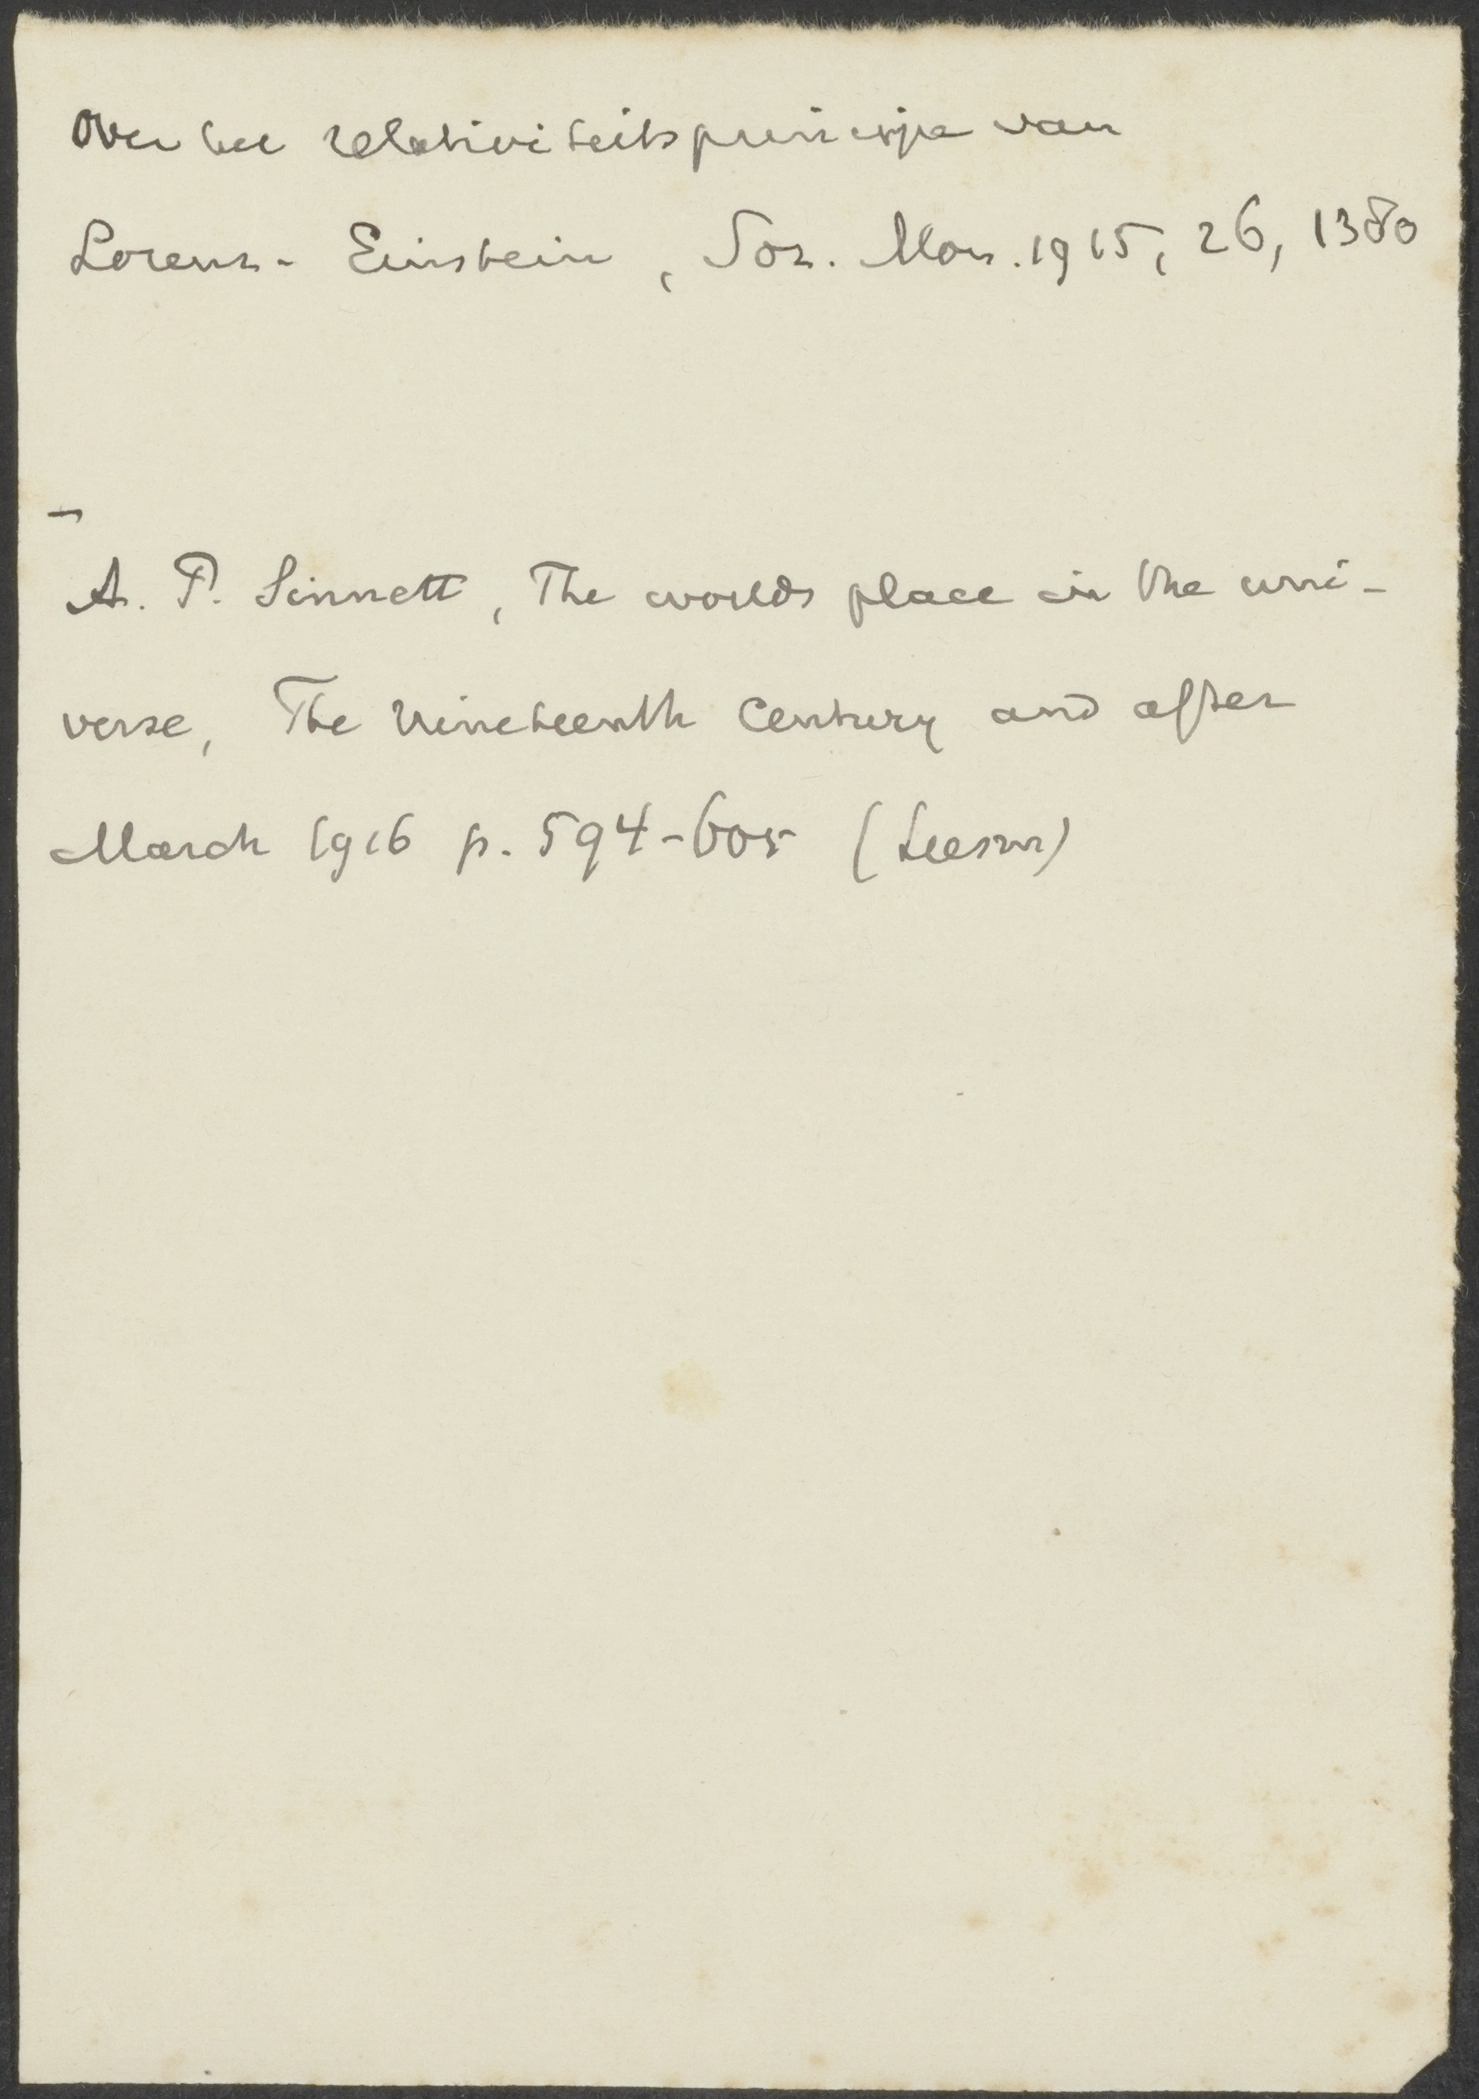 Over het relativiteitsprincipe van
Lorenz - Einstein, Soz. Mon. 1915, 26, 1380
A. P. Sinnett, The worlds place in the uni-
verse, The Nineteenth Century and after
March 1916 p. 594-605 (Leesm)